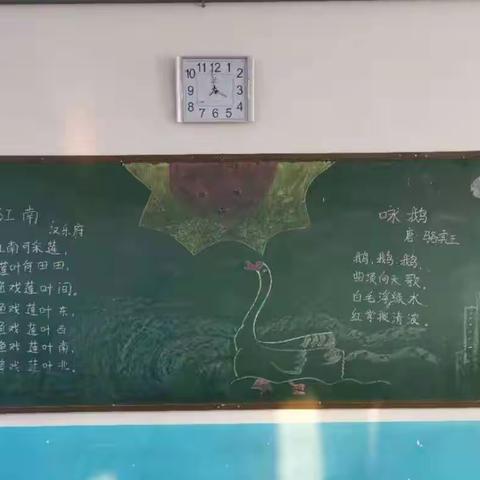 11 12 1
10 2
9 3
8 4
7 6 5
江南
汉乐府
江南可采莲，
莲叶何田田，
鱼戏莲叶间。
鱼戏莲叶东，
鱼戏莲叶西，
鱼戏莲叶南，
鱼戏莲叶北。
咏鹅
唐 骆宾王
鹅，鹅，鹅，
曲项向天歌。
白毛浮绿水，
红掌拨清波。